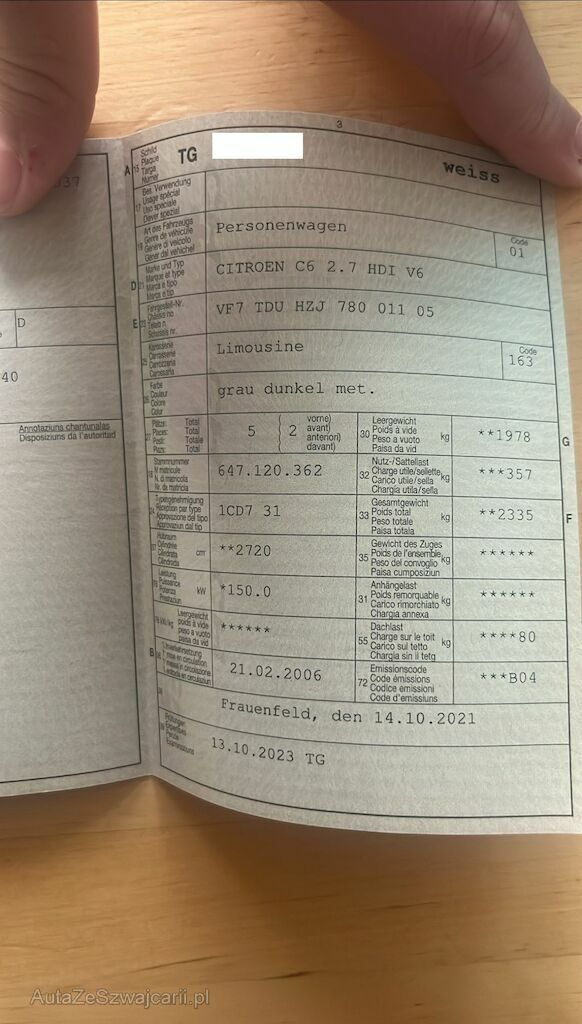 037
D
40
Annotaziuns chantunalas
Disposiziuns da l'autoritad
3
A 15 Schild
Plaque
Targa
Numer
TG
weiss
17 Bes. Verwendung
Usage spécial
Uso speciale
Diever spezial
19 Art des Fahrzeugs
Genre de véhicule
Genere di veicolo
Gener dal vehichel
Personenwagen
Code
01
D 21 Marke und Typ
Marque et type
Marca e tipo
Marca e tip
CITROEN C6 2.7 HDI V6
E 23 Fahrgestell-Nr.
Châssis no
Telaio n.
Schassis nr.
VF7 TDU HZJ 780 011 05
25 Karosserie
Carrosserie
Carrozzeria
Carossaria
Limousine
Code
163
26 Farbe
Couleur
Colore
Colur
grau dunkel met.
27 Plätze: Total
Places: Total
Posti: Totale
Plazs: Total
5 ( 2 vorne)
avant)
anteriori)
davant)
30 Leergewicht
Poids à vide
Peso a vuoto
Paisa da vid
kg
**1978
G
18 Stammnummer
N matricule
N. di matricola
Nr. da matricla
647.120.362
32 Nutz-/Sattellast
Charge utile/sellette
Carico utile/sella
Chargia utila/sella
kg
***357
24 Typengenehmigung
Réception par type
Approvazione del tipo
Approvaziun dal tip
1CD7 31
33 Gesamtgewicht
Poids total
Peso totale
Paisa totala
kg
**2335
F
37 Hubraum
Cylindrée
Cilindrata
Cilindrada
cm³
**2720
35 Gewicht des Zuges
Poids de l'ensemble
Peso del convoglio
Paisa cumposiziun
kg
******
76 Leistung
Puissance
Potenza
Prestaziun
kW
*150.0
31 Anhängelast
Poids remorquable
Carico rimorchiato
Chargia annexa
kg
******
78 kW/kg Leergewicht
poids à vide
peso a vuoto
paisa da vid
******
55 Dachlast
Charge sur le toit
Carico sul tetto
Chargia sin il tetg
kg
****80
B 36 1. Inverkehrsetzung
mise en circulation
messa in circolazione
entrada en circulaziun
21.02.2006
72 Emissionscode
Code émissions
Codice emissioni
Code d'emissiuns
***B04
38
Frauenfeld, den 14.10.2021
39 Prüfungen
Expertises
Perizie
Examinaziuns
13.10.2023 TG
AutaZeSzwajcarii.pl